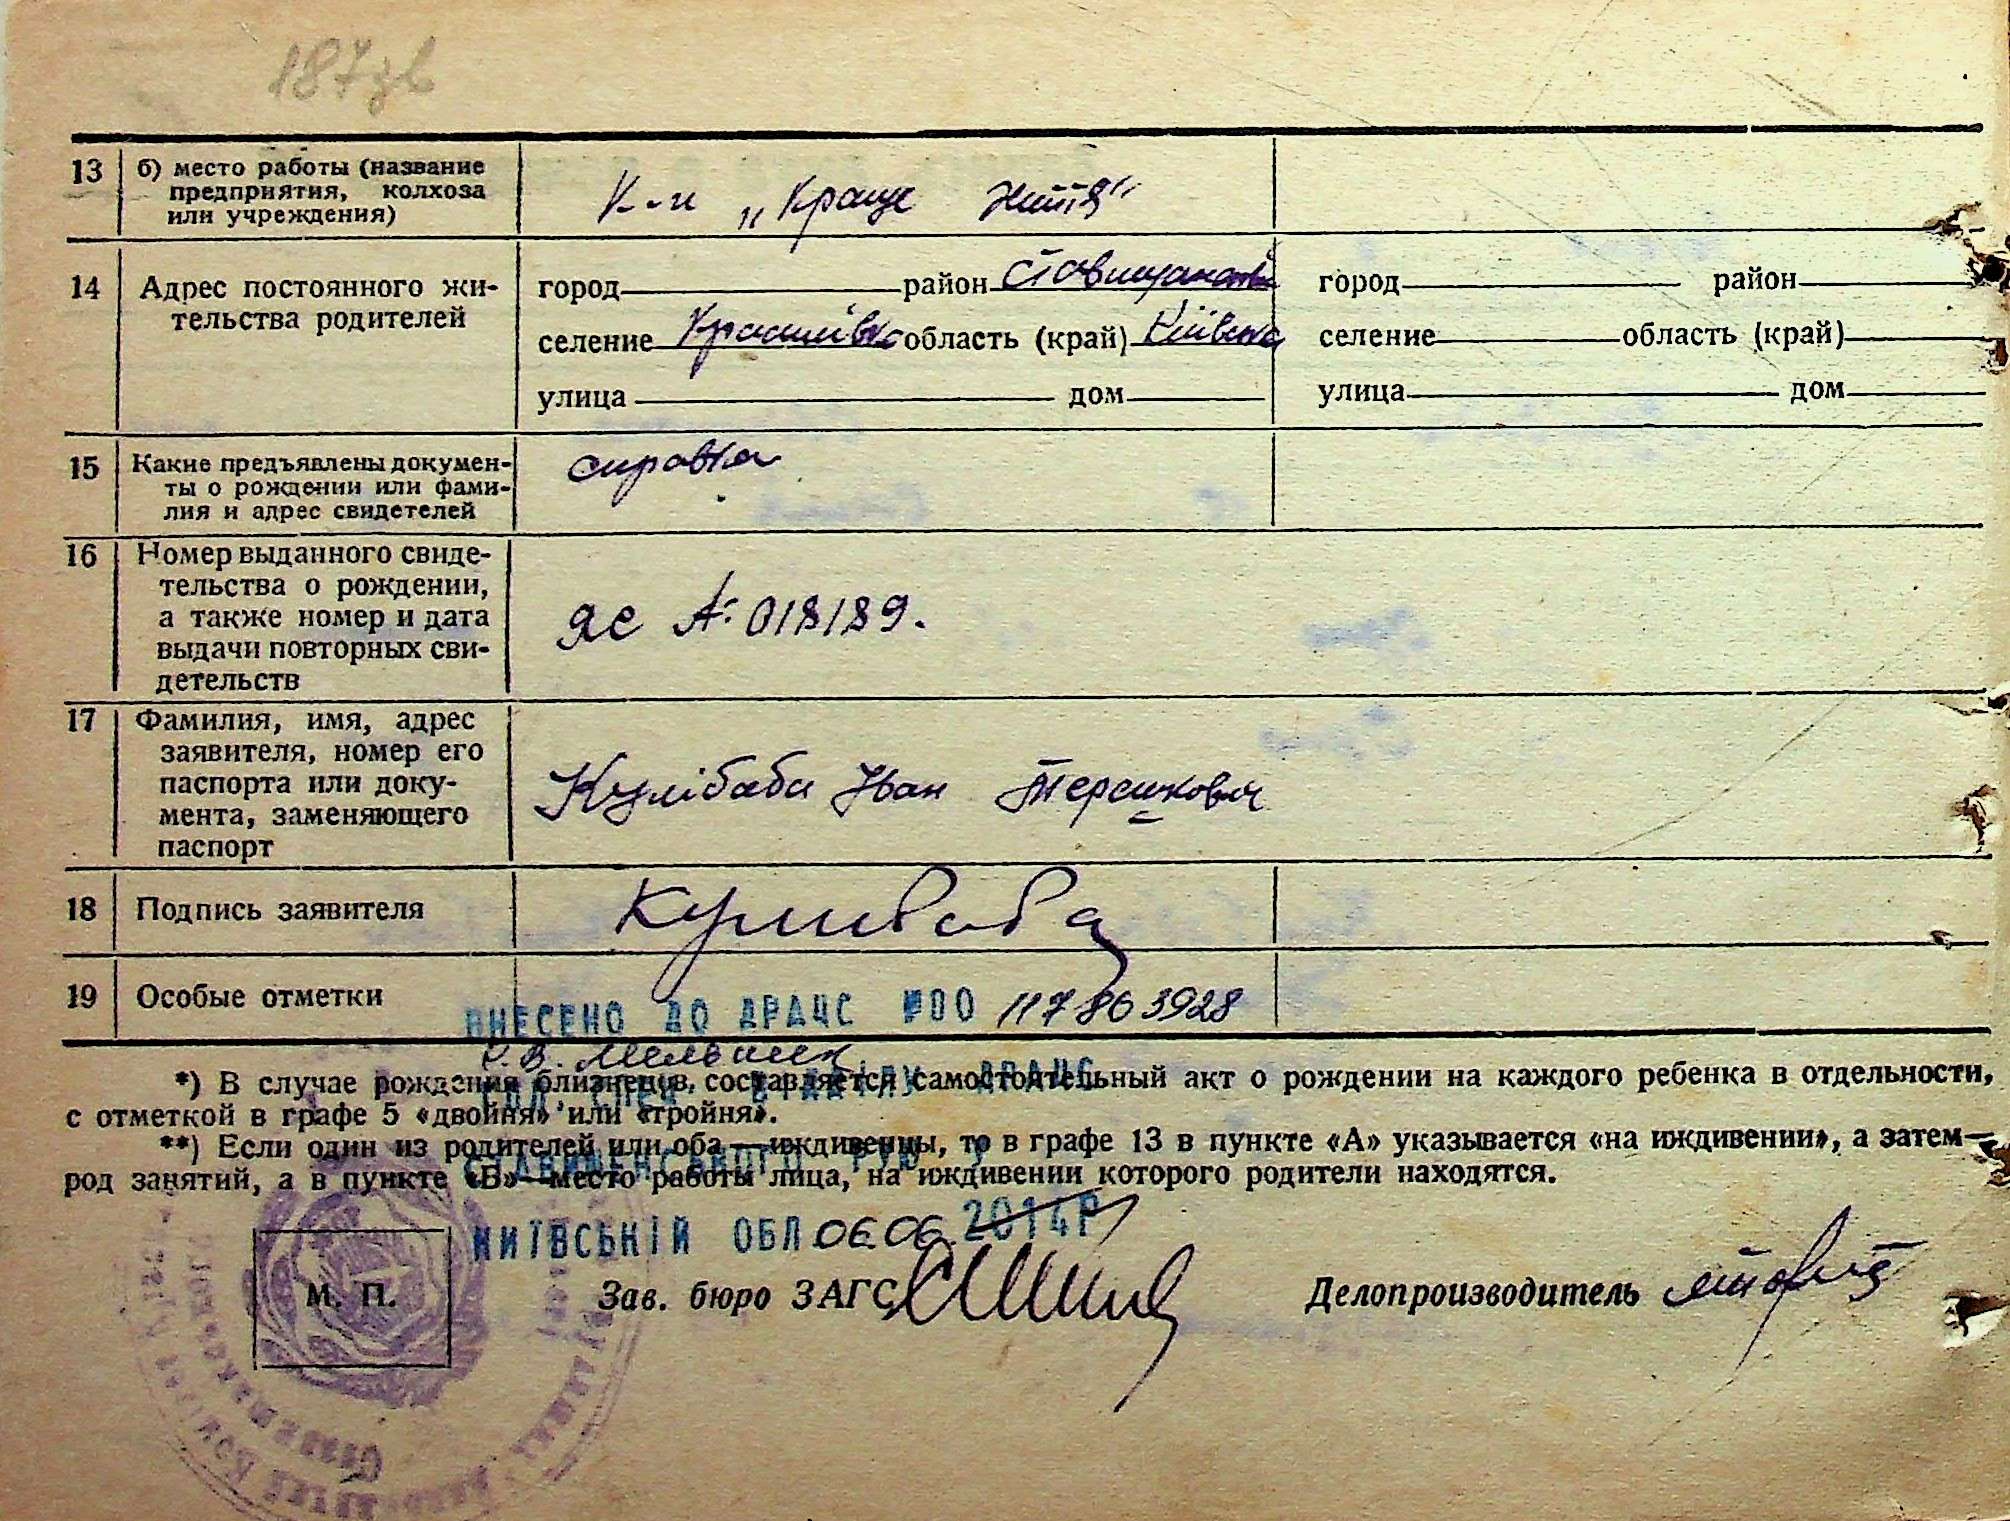 187зв
13 б) место работы (название
предприятия, колхоза
или учреждения)
К-п „Краще життя"
14 Адрес постоянного жи-
тельства родителей
город район Ставищанський город район
селение Красилівка область (край) Київська селение область (край)
улица дом улица дом
15 Какие предъявлены докумен-
ты о рождении или фами-
лия и адрес свидетелей
справка
16 Номер выданного свиде-
тельства о рождении,
а также номер и дата
выдачи повторных сви-
детельств
ЯС 018189.
17 Фамилия, имя, адрес
заявителя, номер его
паспорта или доку-
мента, заменяющего
паспорт
Кулібаба Іван Терешкович
18 Подпись заявителя
Кулибаба
19 Особые отметки
ВНЕСЕНО ДО ДРАЦС №00 117863928
*) В случае рождения близнецов, составляется самостоятельный акт о рождении на каждого ребенка в отдельности,
с отметкой в графе 5 «двойня» или «тройня».
**) Если один из родителей или оба — иждивенцы, то в графе 13 в пункте «А» указывается «на иждивении», а затем—
род занятий, а в пункте «Б»—место работы лица, на иждивении которого родители находятся.
КИЇВСЬКІЙ ОБЛ 06.06. 2014Р
М. П.
Зав. бюро ЗАГС
Делопроизводитель